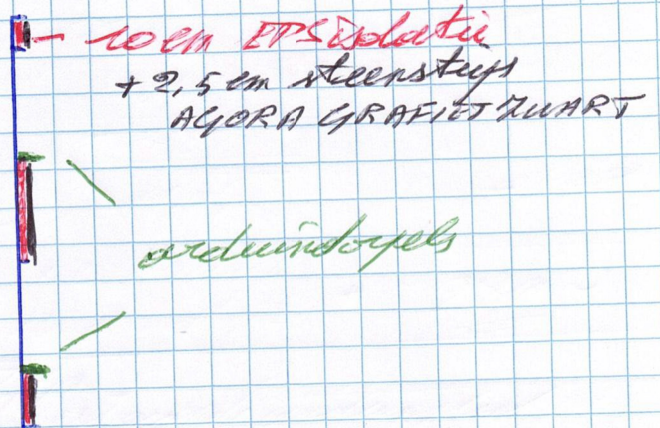 10 cm EPS isolatie
+ 2,5 cm steenstrips
AGORA GRAFIET ZWART
arduindorpels